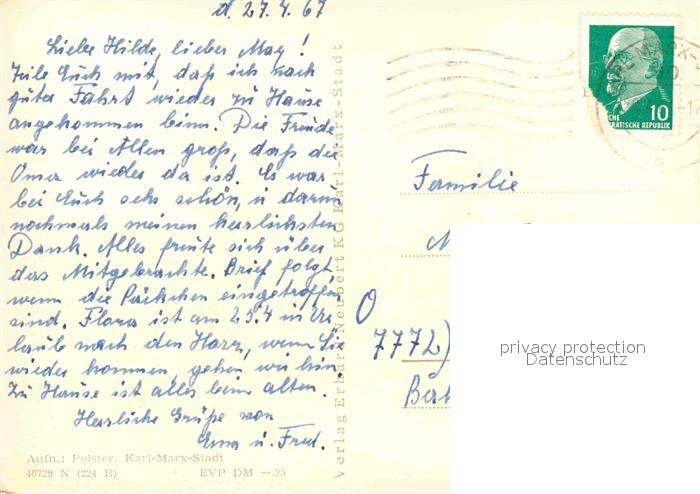 d. 27.4.67
Liebe Hilde, lieber Max!
Teile Euch mit, daß ich nach
guter Fahrt wieder zu Hause
angekommen binn. Die Freude
war bei Allen groß, daß die
Oma wieder da ist. Es war
bei Euch sehr schön, u darum
nochmals meinen herzlichsten
Dank. Alles freute sich über
das Mitgebrachte. Brief folgt,
wenn die Päckchen eingetroffen
sind. Flora ist am 25.4 in Ur
laub nach den Harz, wenn Sie
wieder kommen, gehen wir hin.
Zu Hause ist alles beim alten.
Herzliche Grüße von
Erna u. Fred.
Aufn.: Polster, Karl-Marx-Stadt
40729 N (224 B) EVP DM —.25
Verlag Erhard Neubert KG Karl-Marx-Stadt
10
CHE
KRATISCHE REPUBLIK
KARL-MARX-S
Familie
7772)
privacy protection
Datenschutz